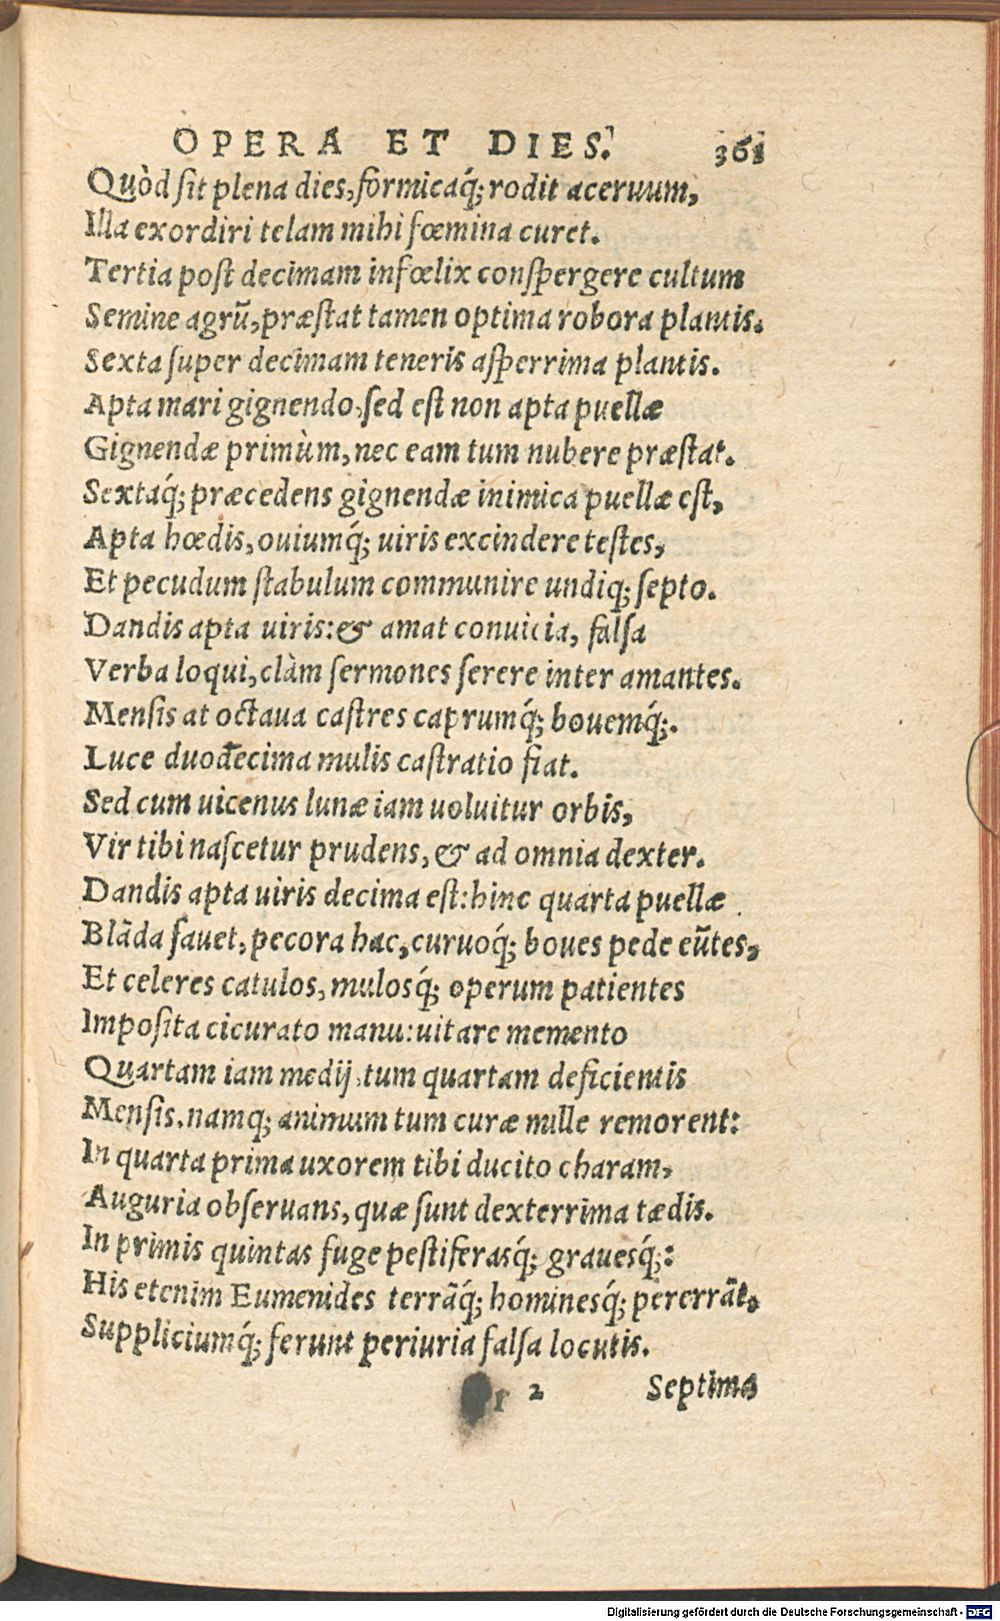 OPERA ET DIES. 361
Quòd sit plena dies, formicaq́; rodit aceruum,
Illa exordiri telam mihi fœmina curet.
Tertia post decimam infœlix conspergere cultum
Semine agrũ, præstat tamen optima robora plantis.
Sexta super decimam teneris asperrima plantis.
Apta mari gignendo, sed est non apta puellæ
Gignendæ primùm, nec eam tum nubere præstat.
Sextaq́; præcedens gignendæ inimica puellæ est,
Apta hœdis, ouiumq́; uiris excindere testes,
Et pecudum stabulum communire undiq; septo.
Dandis apta uiris: & amat conuicia, falsa
Verba loqui, clàm sermones serere inter amantes.
Mensis at octaua castres caprumq́; bouemq́;.
Luce duodecima mulis castratio fiat.
Sed cum uicenus lunæ iam uoluitur orbis,
Vir tibi nascetur prudens, & ad omnia dexter.
Dandis apta uiris decima est: hinc quarta puellæ
Blãda fauet, pecora hac, curuoq́; boues pede eũtes,
Et celeres catulos, mulosq́; operum patientes
Imposita cicurato manu: uitare memento
Quartam iam medij, tum quartam deficientis
Mensis. namq; animum tum curæ mille remorent:
In quarta prima uxorem tibi ducito charam,
Auguria obseruans, quæ sunt dexterrima tædis.
In primis quintas fuge pestiferasq́; grauesq́;:
His etenim Eumenides terrãq́; hominesq́; pererrãt,
Suppliciumq́; ferunt periuria falsa locutis.
2 Septima
Digitalisierung gefördert durch die Deutsche Forschungsgemeinschaft - DFG